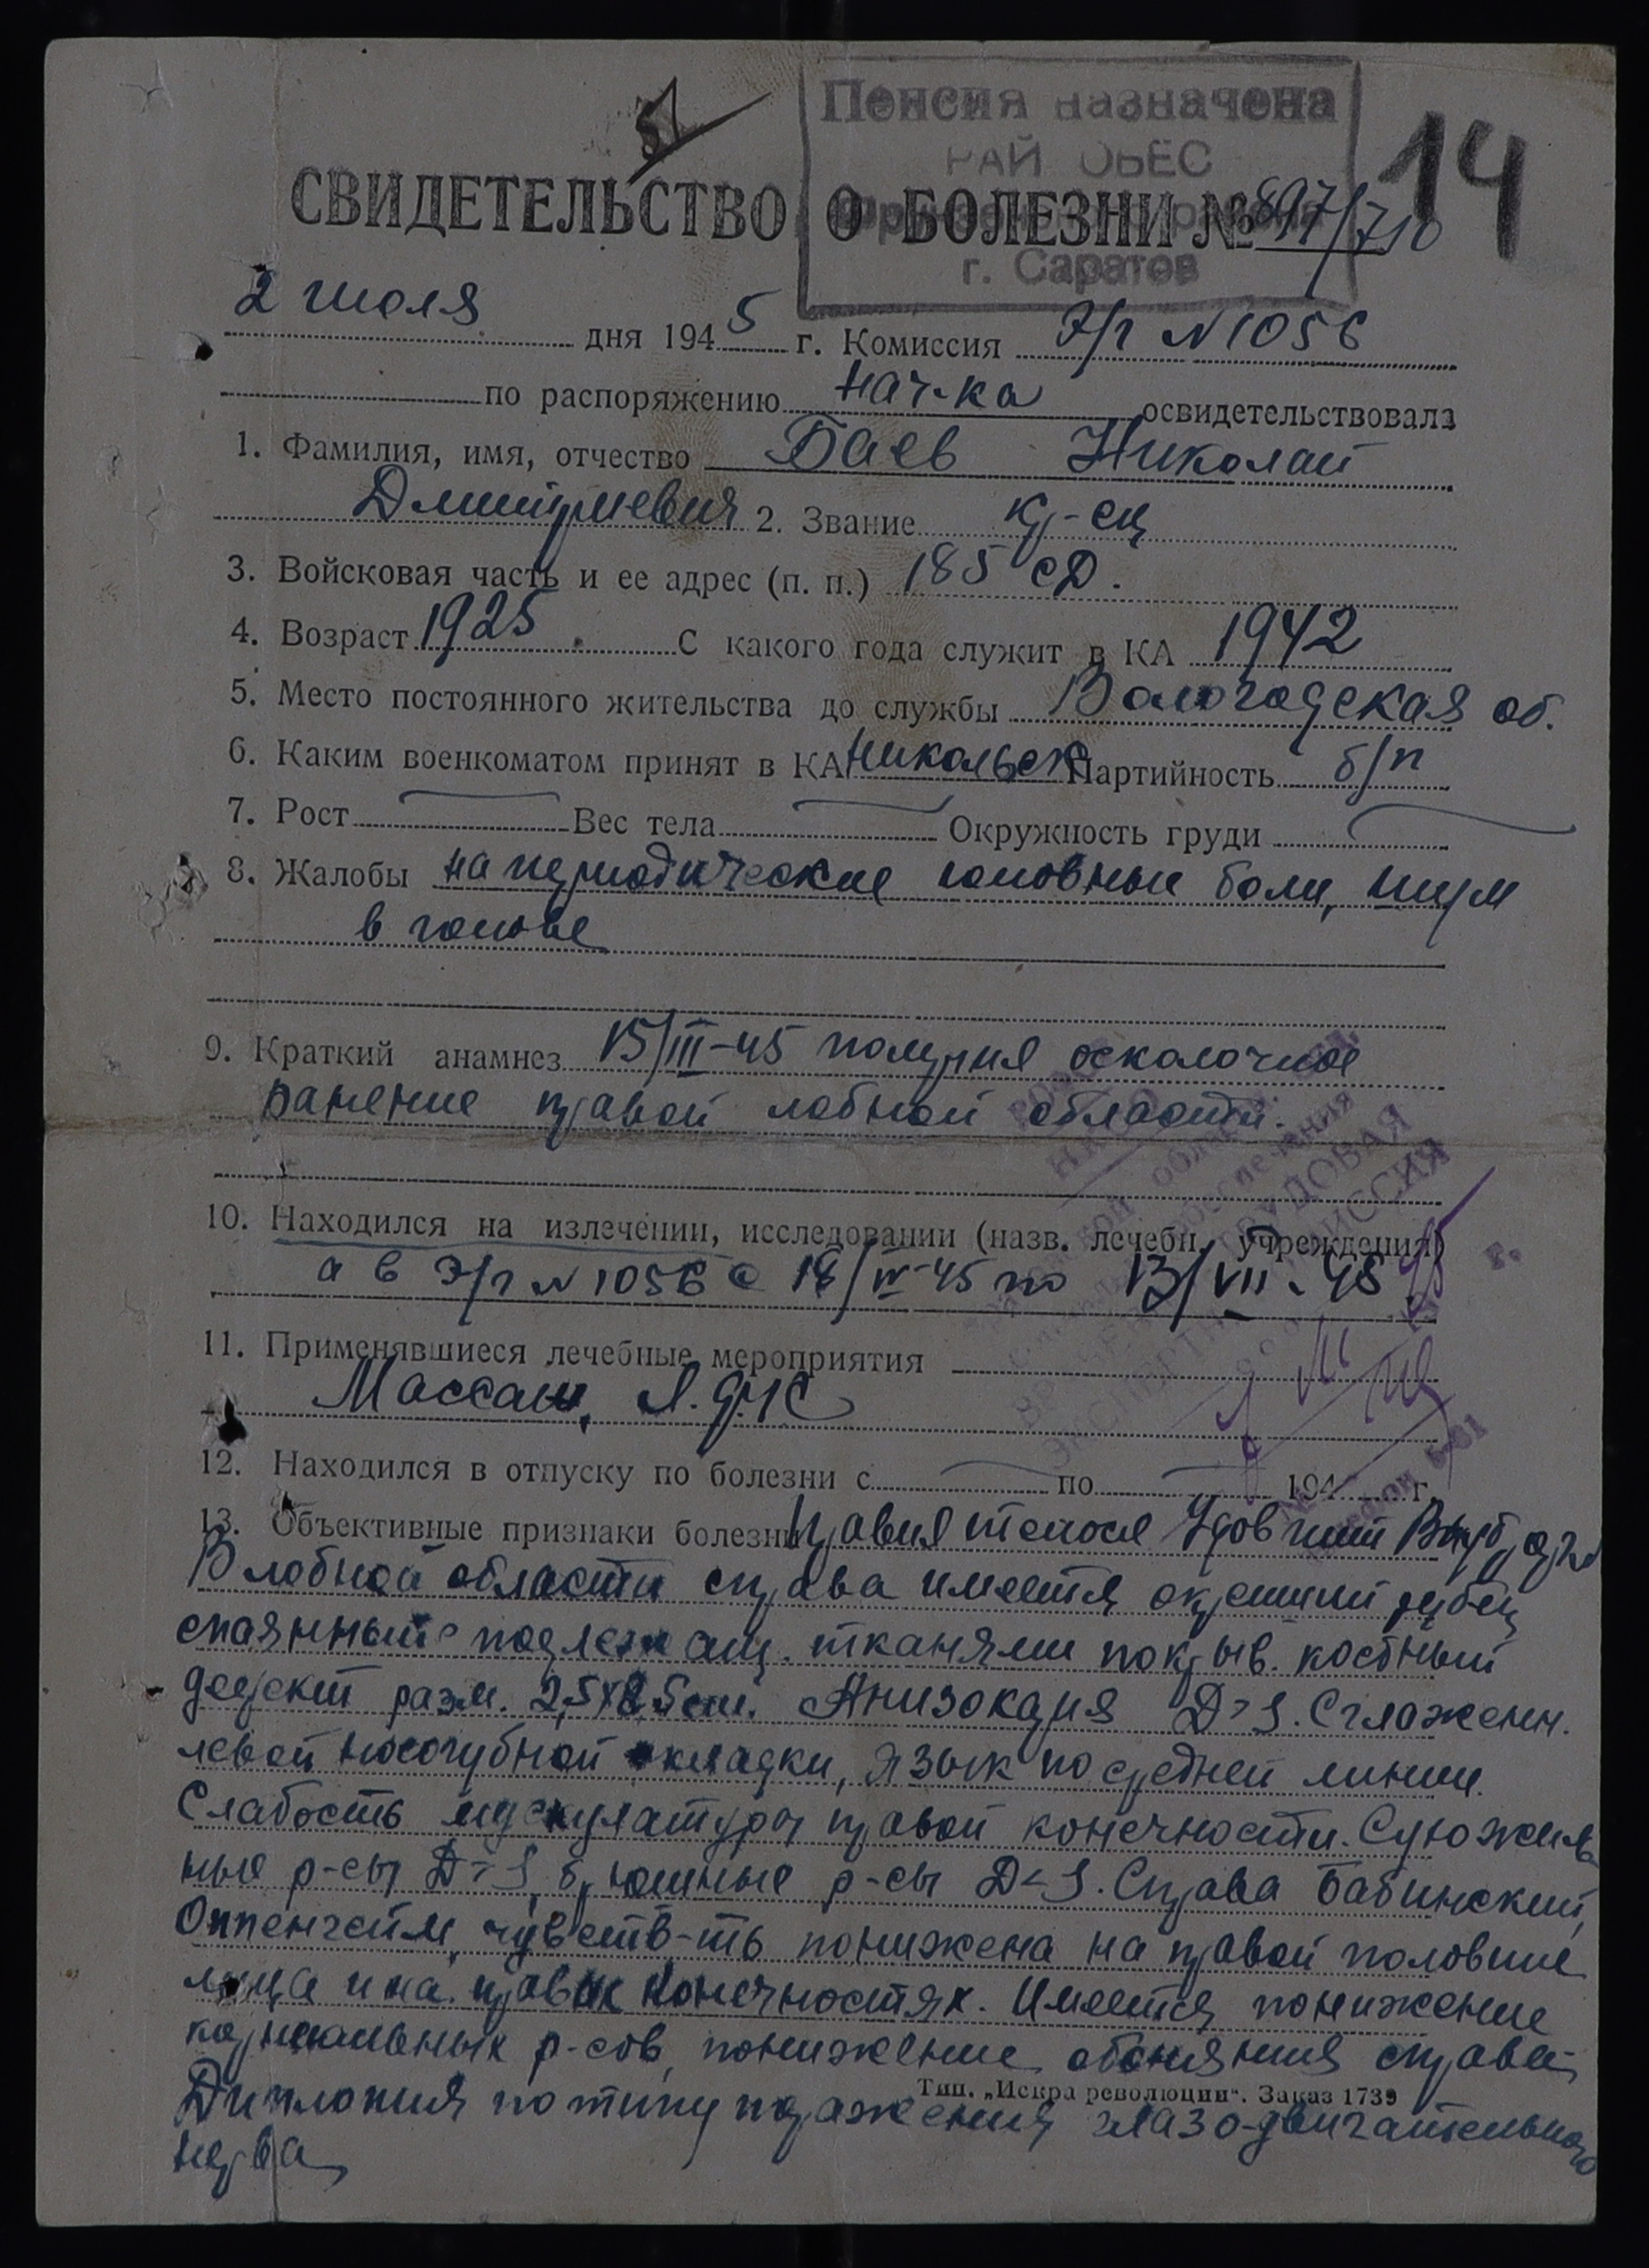 51
Пенсия назначена
РАЙ ОБЕС
г. Саратов
14
СВИДЕТЕЛЬСТВО О БОЛЕЗНИ № 897/710
2 июля дня 1945 г. Комиссия Э/г N 1056
по распоряжению нач-ка освидетельствовала
1. Фамилия, имя, отчество Баев Николай
Дмитриевич 2. Звание кр-ец
3. Войсковая часть и ее адрес (п. п.) 185 сД.
4. Возраст 1925. С какого года служит в КА 1942
5. Место постоянного жительства до службы Вологодская об.
6. Каким военкоматом принят в КА Никольск Партийность б/п
7. Рост Вес тела Окружность груди
8. Жалобы на периодические головные боли, шум
в голове
9. Краткий анамнез 15/III-45 получил осколочное
ранение правой лобной области.
10. Находился на излечении, исследовании (назв. лечебн. учреждения)
в Э/г N 1056 с 18/IV-45 по 13/VII-45
11. Применявшиеся лечебные мероприятия
Массаж, Л.ф.к
12. Находился в отпуску по болезни с по 194 г.
13. Объективные признаки болезни
В лобной области справа имеется окрепший рубец
спаянный с подлежащ. тканями покрыв. костный
дефект разм. 2,5х2,5см. Анизокария Д>S. Сглаженн.
левой носогубной складки, язык по средней линии.
Слабость мускулатуры правой конечности. Сухожиль-
ные р-сы Д>S, брюшные р-сы Д<S. Справа Бабинский,
Оппенгейм, чувств-ть понижена на правой половине
лица и на правых конечностях. Имеется понижение
корнеальных р-сов, понижение обоняния справа
Тип. „Искра революции“. Заказ 1739
Диплопия по типу поражения глазо-двигательного
нерва